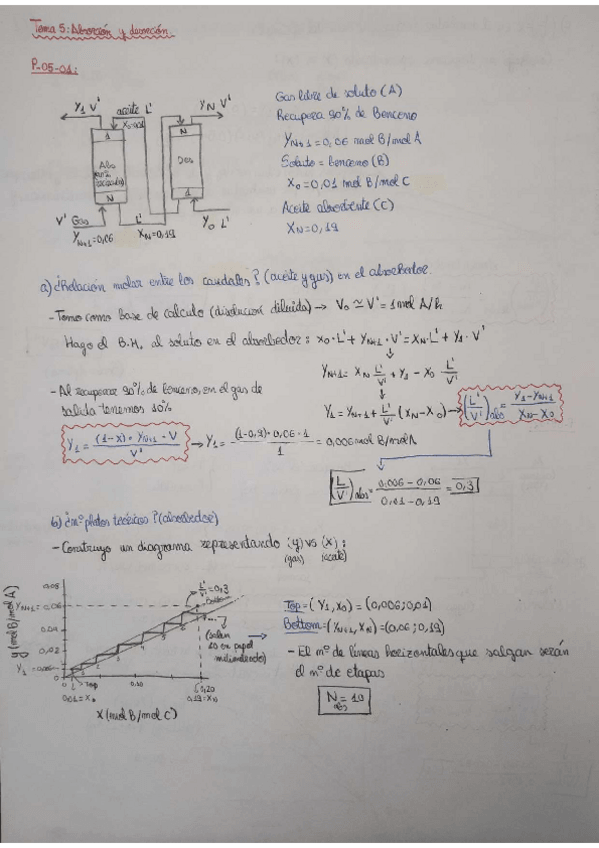 Tema 5: Absorción y desorción
P-05-01:
Y₁ V'
aceite L'
X₀=0,01
Y_N V'
1
N
Abs
Des
N
1
V' Gas
Y_N+1=0,06
L'
X_N=0,19
Y₀ L'
Gas libre de soluto (A)
Recupera 90% de Benceno
Y_N+1=0,06 mol B/mol A
Soluto = benceno (B)
X₀=0,01 mol B/mol C
Aceite absorbente (C)
X_N=0,19
a) ¿Relación molar entre los caudales? (aceite y gas) en el absorbedor.
- Tomo como base de calculo (disolución diluida) → V₀ ≃ V' = 1 mol A/h
Hago el B.M. al soluto en el absorbedor: X₀·L' + Y_N+1·V' = X_N·L' + Y₁·V'
Y_N+1 = X_N L'/V' + Y₁ - X₀ L'/V'
- Al recuperar 90% de benceno, en el gas de
salida tenemos 10%
Y₁ = Y_N+1 + L'/V' (X_N - X₀) → (L'/V')abs = (Y₁ - Y_N+1)/(X_N - X₀)
Y₁ = (1-x)·Y_N+1·V/V' → Y₁ = (1-0,9)·0,06·1/1 = 0,006 mol B/mol A
(L/V')abs = (0,006 - 0,06)/(0,01 - 0,19) = 0,3
b) ¿nº platos teóricos? (absorbedor)
- Construyo un diagrama representando (y) vs (x):
(gas) (aceite)
y (mol B/mol A)
0,08
Y_N+1 = 0,06
0,04
0,02
Y₁ = 0,006
0
L'/V' = 0,3
Bottom
(Salen
10 en papel
milimetrado)
Top
0,10
0,20
0,01=X₀
0,19=X_N
X (mol B/mol C)
Top = (Y₁, X₀) = (0,006; 0,01)
Bottom = (Y_N+1, X_N) = (0,06; 0,19)
- El nº de líneas horizontales que salgan serán
el nº de etapas
N abs = 10